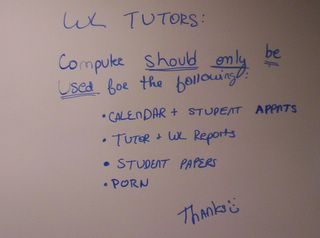 WC TUTORS:
Computer should only be
used for the following:
• CALENDAR + STUDENT APPNTS
• TUTOR + WC Reports
• STUDENT PAPERS
• PORN
Thanks :)